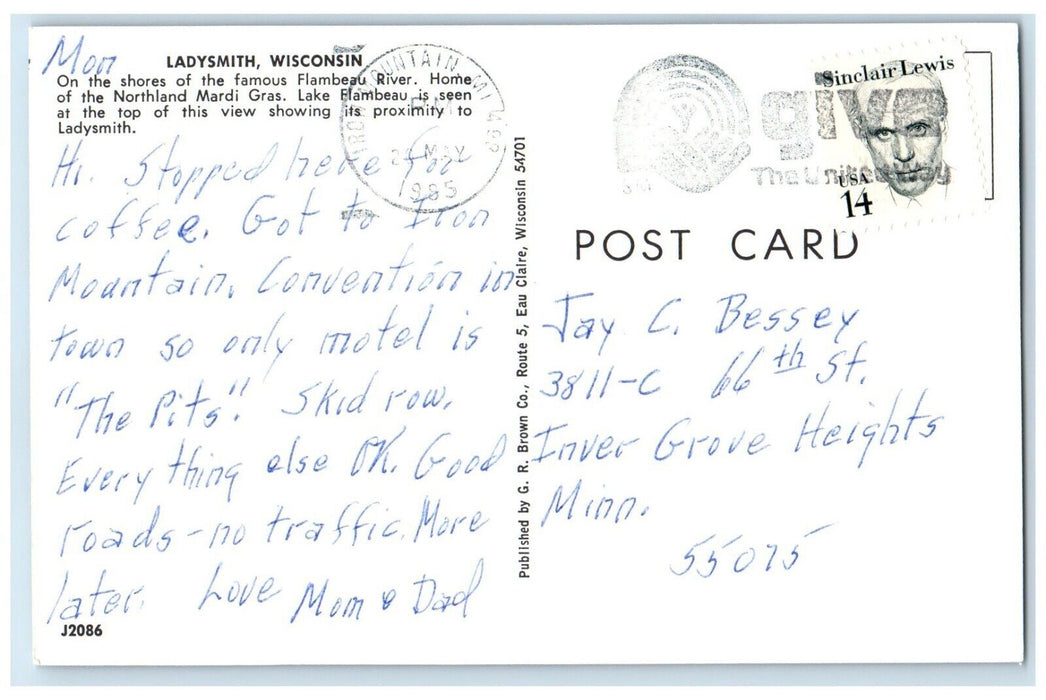 Mon
LADYSMITH, WISCONSIN
On the shores of the famous Flambeau River. Home
of the Northland Mardi Gras. Lake Flambeau is seen
at the top of this view showing its proximity to
Ladysmith.
Hi. Stopped here for
coffee. Got to Iron
Mountain. Convention in
town so only motel is
"The Pits". Skid row.
Everything else OK. Good
roads-no traffic. More
later. Love Mom & Dad
J2086
Published by G. R. Brown Co., Route 5, Eau Claire, Wisconsin 54701
IRON MOUNTAIN, MI 498
PM
MAY
1985
give
The United Way
Sinclair Lewis
USA
14
POST CARD
Jay C. Bessey
3811-C 66th St.
Inver Grove Heights
Minn.
55075